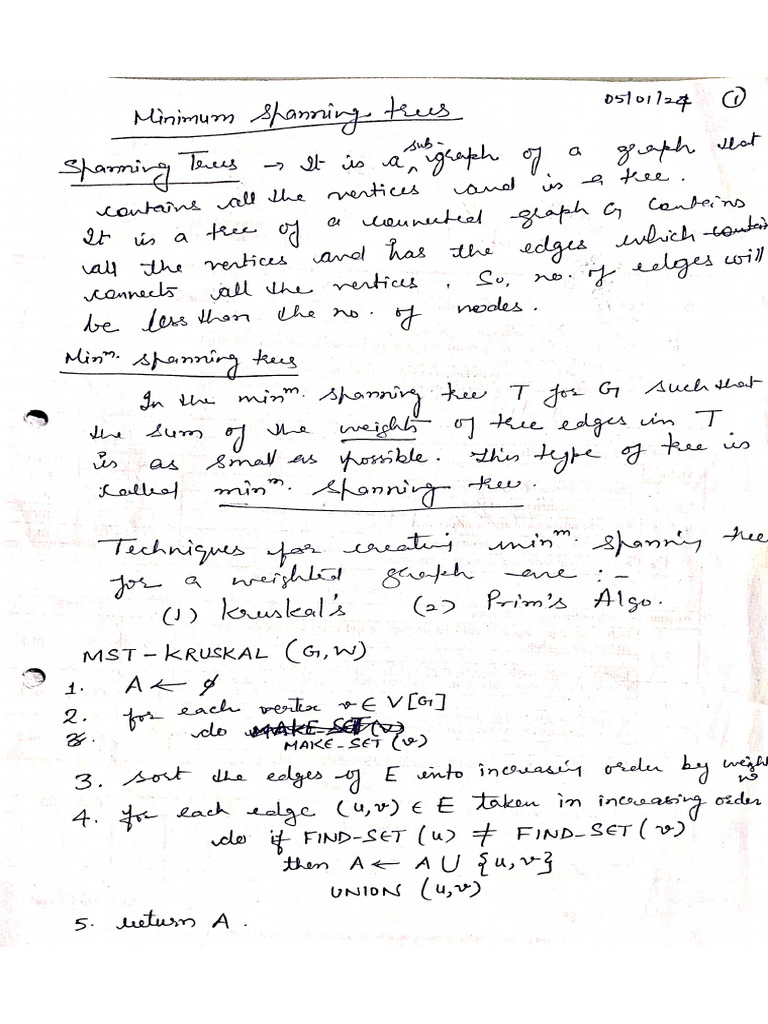 05/01/24 1
Minimum Spanning trees
Spanning Trees → It is a sub-graph of a graph that
contains all the vertices and is a tree.
It is a tree of a connected graph G contains
all the vertices and has the edges which contain
connects all the vertices. So, no. of edges will
be less than the no. of nodes.
Minm. spanning trees
In the minm. spanning tree T for G such that
the sum of the weights of tree edges in T
is as small as possible. This type of tree is
called minm. spanning tree.
Techniques for creating minm. spanning tree
for a weighted graph are :-
(1) Kruskal's (2) Prim's Algo.
MST-KRUSKAL (G,W)
1. A ← ϕ
2. for each vertex v ∈ V[G]
do MAKE-SET(v)
MAKE-SET(v)
3. sort the edges of E into increasing order by weight
w
4. for each edge (u,v) ∈ E taken in increasing order
do if FIND-SET(u) ≠ FIND-SET(v)
then A ← A ∪ {u,v}
UNION (u,v)
5. return A.